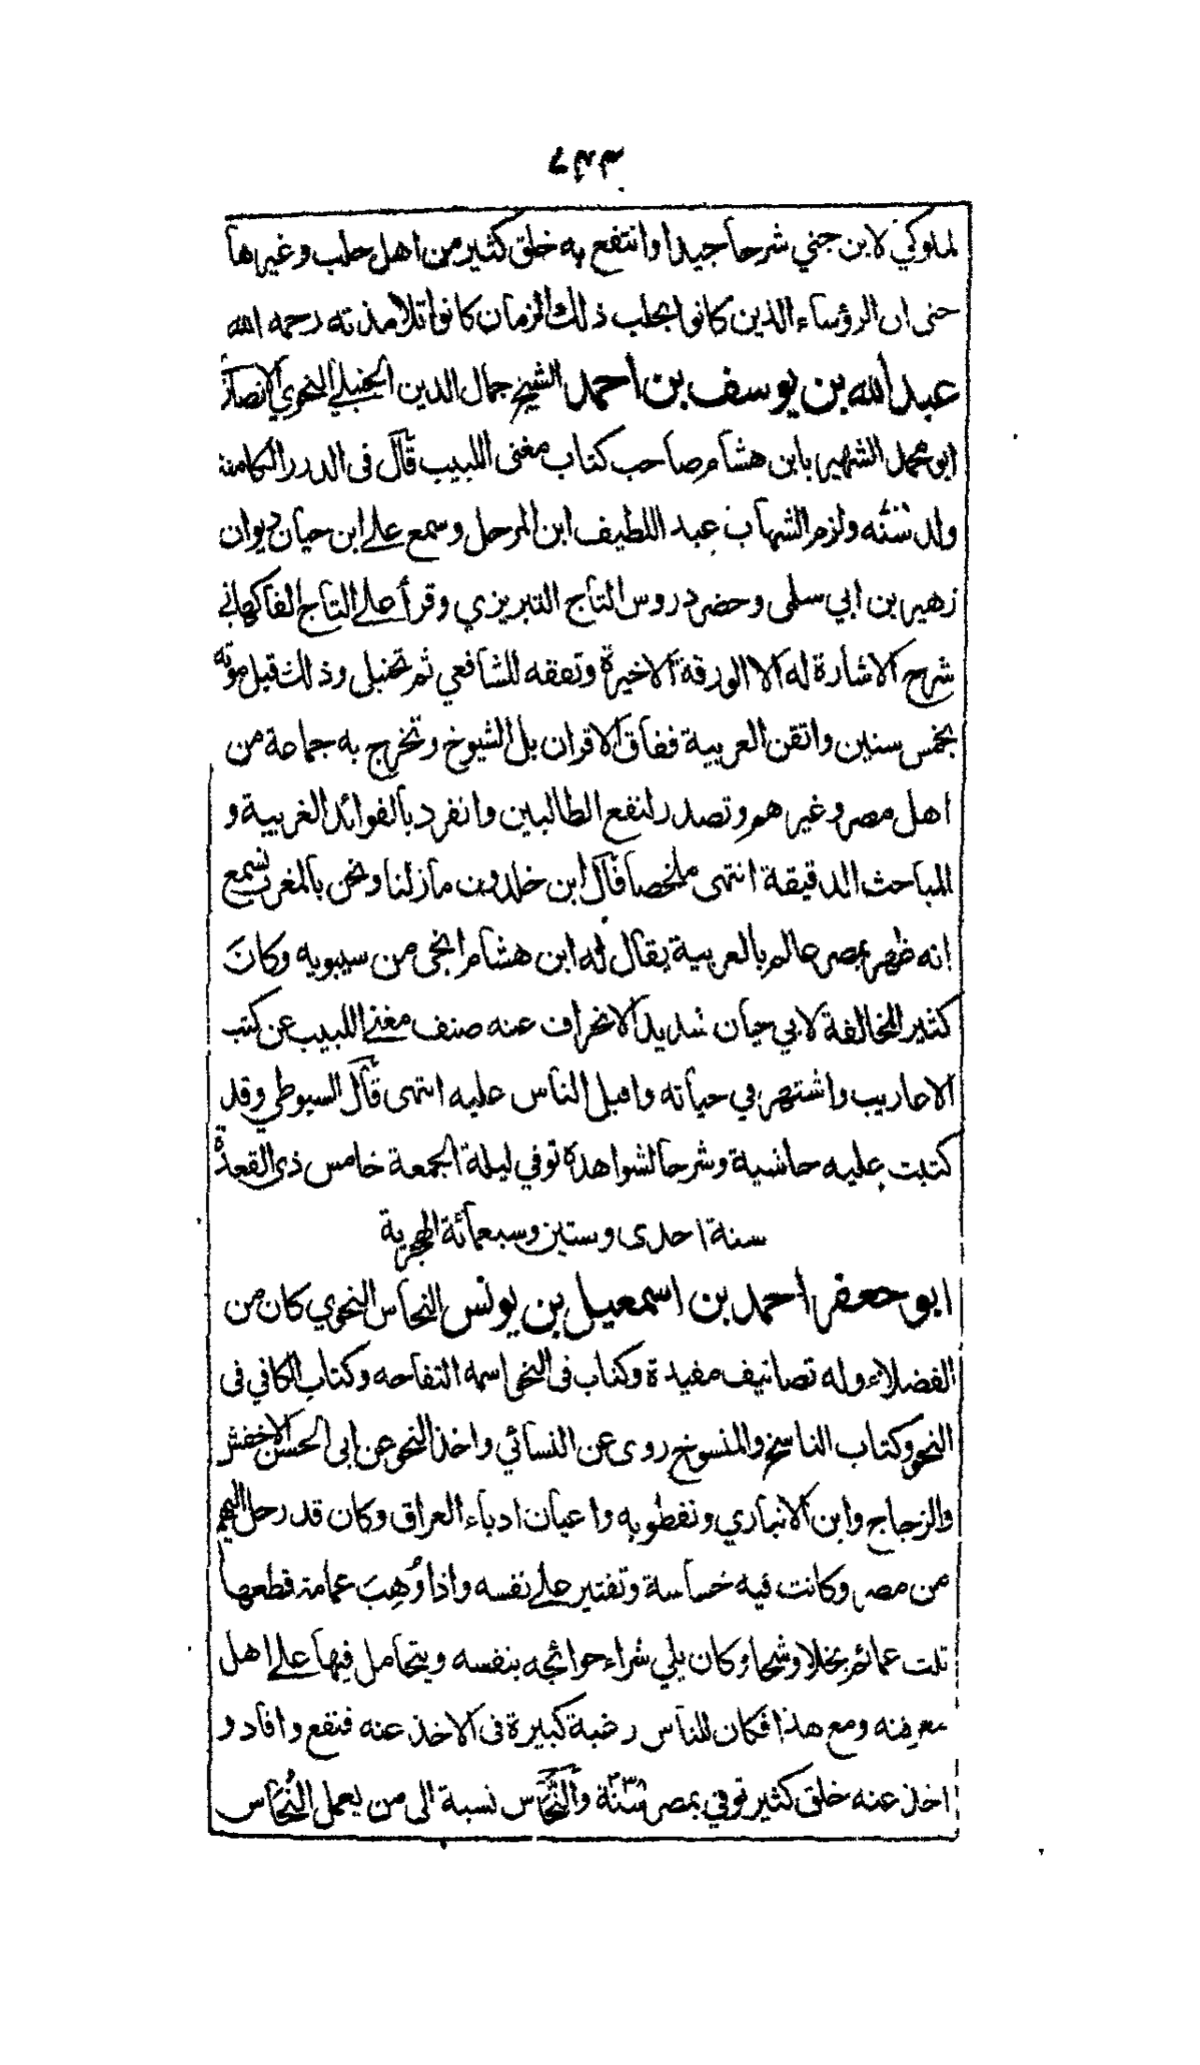 ٧٤٣
لملوكي لابن جني شرحا جيدا وانتفع به خلق كثير من اهل حلب وغيرها
حتى ان الرؤساء الذين كانوا بحلب ذلك الزمان كانوا تلامذته رحمه الله
عبد الله بن يوسف بن احمد الشيخ جمال الدين الحنبلي النحوي الانصاري
ابو محمد الشهير بابن هشام صاحب كتاب مغنى اللبيب قال فى الدرر الكامنة
ولد سنه ولزم الشهاب عبد اللطيف ابن المرحل وسمع على ابن حيان ديوان
زهير بن ابي سلمى وحضر دروس التاج التبريزي وقرأ على التاج الفاكهاني
شرح الاشارة له الا الورقة الاخيرة وتفقه للشافعي ثم تحنبل وذلك قبل موته
بخمس سنين واتقن العربية ففاق الاقران بل الشيوخ وتخرج به جماعة من
اهل مصر وغيرهم وتصدر لنفع الطالبين وانفرد بالفوائد الغريبة و
المباحث الدقيقة انتهى ملخصا قال ابن خلدون مازلنا ونحن بالمغرب نسمع
انه ظهر بمصر عالم بالعربية يقال له ابن هشام انحى من سيبويه وكان
كثير المخالفة لابي حيان شديد الانحراف عنه صنف مغني اللبيب عن كتب
الاعاريب واشتهر في حياته واقبل الناس عليه انتهى قال السيوطي وقد
كتبت عليه حاشية وشرحا لشواهده توفي ليلة الجمعة خامس ذى القعدة
سنة احدى وستين وسبعمائة الهجرية
ابو جعفر احمد بن اسمعيل بن يونس النحاس النحوي كان من
الفضلاء وله تصانيف مفيدة وكتاب فى النحو اسمه التفاحه وكتاب الكافي فى
النحو وكتاب الناسخ والمنسوخ روى عن النسائي واخذ النحو عن ابى الحسن الاخفش
والزجاج وابن الانباري ونفطويه واعيان ادباء العراق وكان قد رحل اليهم
من مصر وكانت فيه خساسة وتقتير على نفسه واذا وُهِبَ عمامة قطعها
ثلث عمائم بخلا وشحا وكان يلي شراء حوائجه بنفسه ويتحامل فيها على اهل
معرفته ومع هذا فكان للناس رغبة كبيرة فى الاخذ عنه فنفع وافاد و
اخذ عنه خلق كثير توفي بمصر سنة ٣٣٨ والنَّحَّاس نسبة الى من يعمل النُحاس